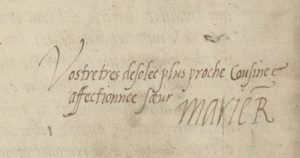 Vostre tres desolee plus proche Cousine et
affectionnee sœur
MARIE R